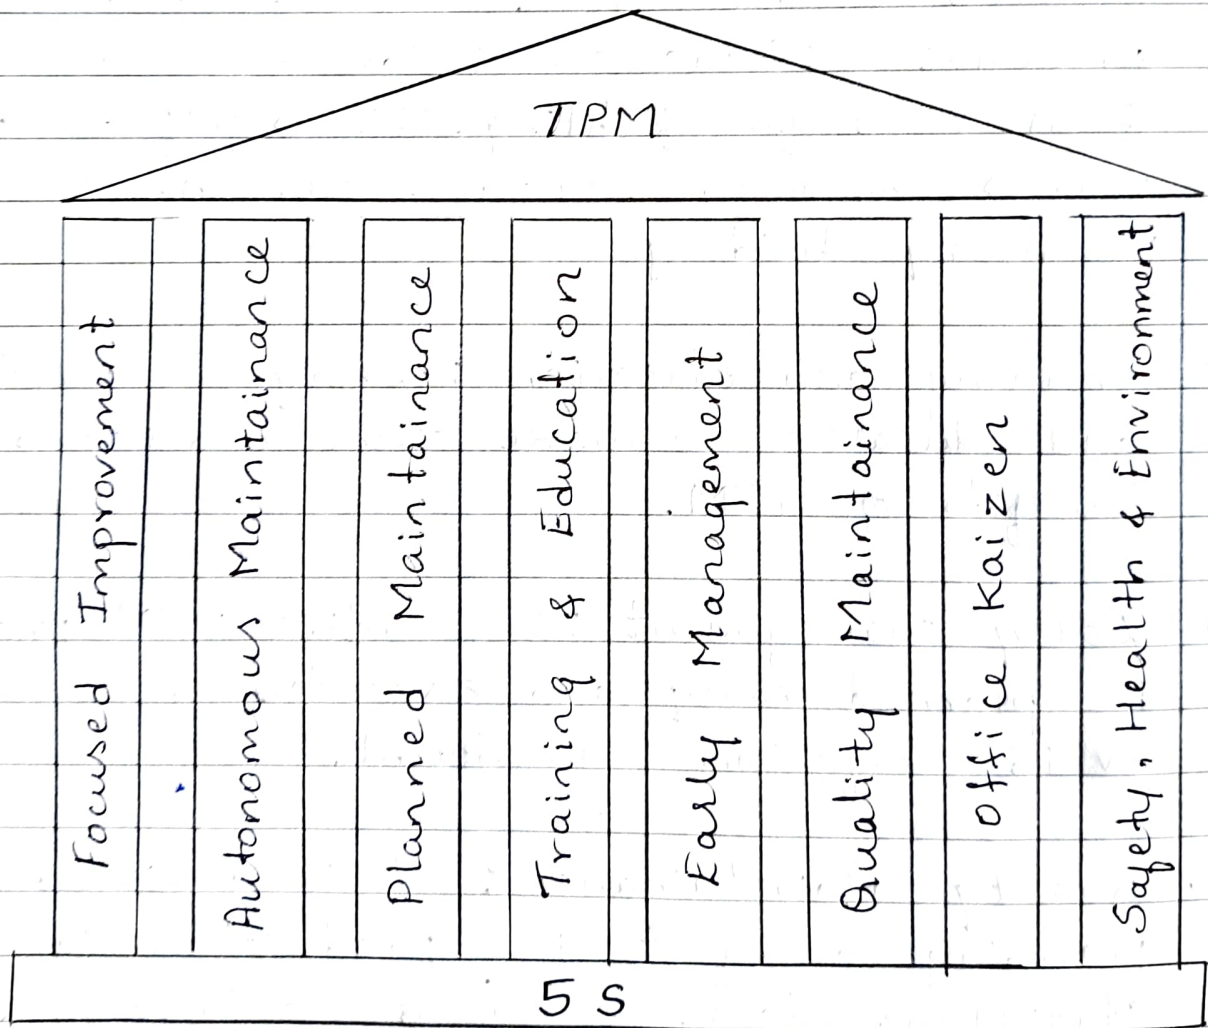 TPM
Focused Improvement
Autonomous Maintainance
Planned Maintainance
Training & Education
Early Management
Quality Maintainance
Office Kaizen
Safety, Health & Environment
5 S